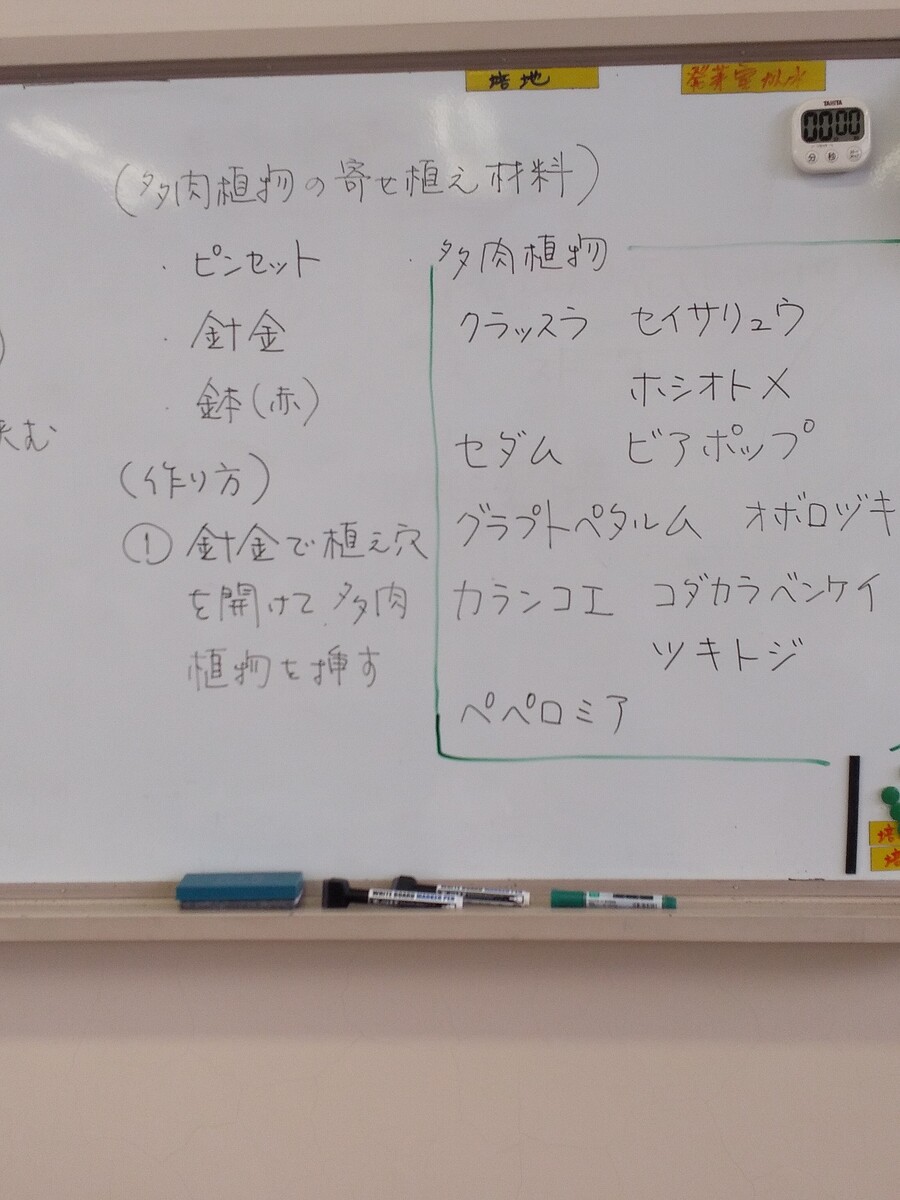 培地
発芽室かん水
TANITA
00 00
分 秒
(多肉植物の寄せ植え材料)
・ピンセット
・針金
・鉢(赤)
(作り方)
① 針金で植え穴
を開けて多肉
植物を挿す
・多肉植物
クラッスラ セイサリュウ
ホシオトメ
セダム ビアポップ
グラプトペタルム オボロヅキ
カランコエ コダカラベンケイ
ツキトジ
ペペロミア
む
WHITE BOARD MARKER PEN
培